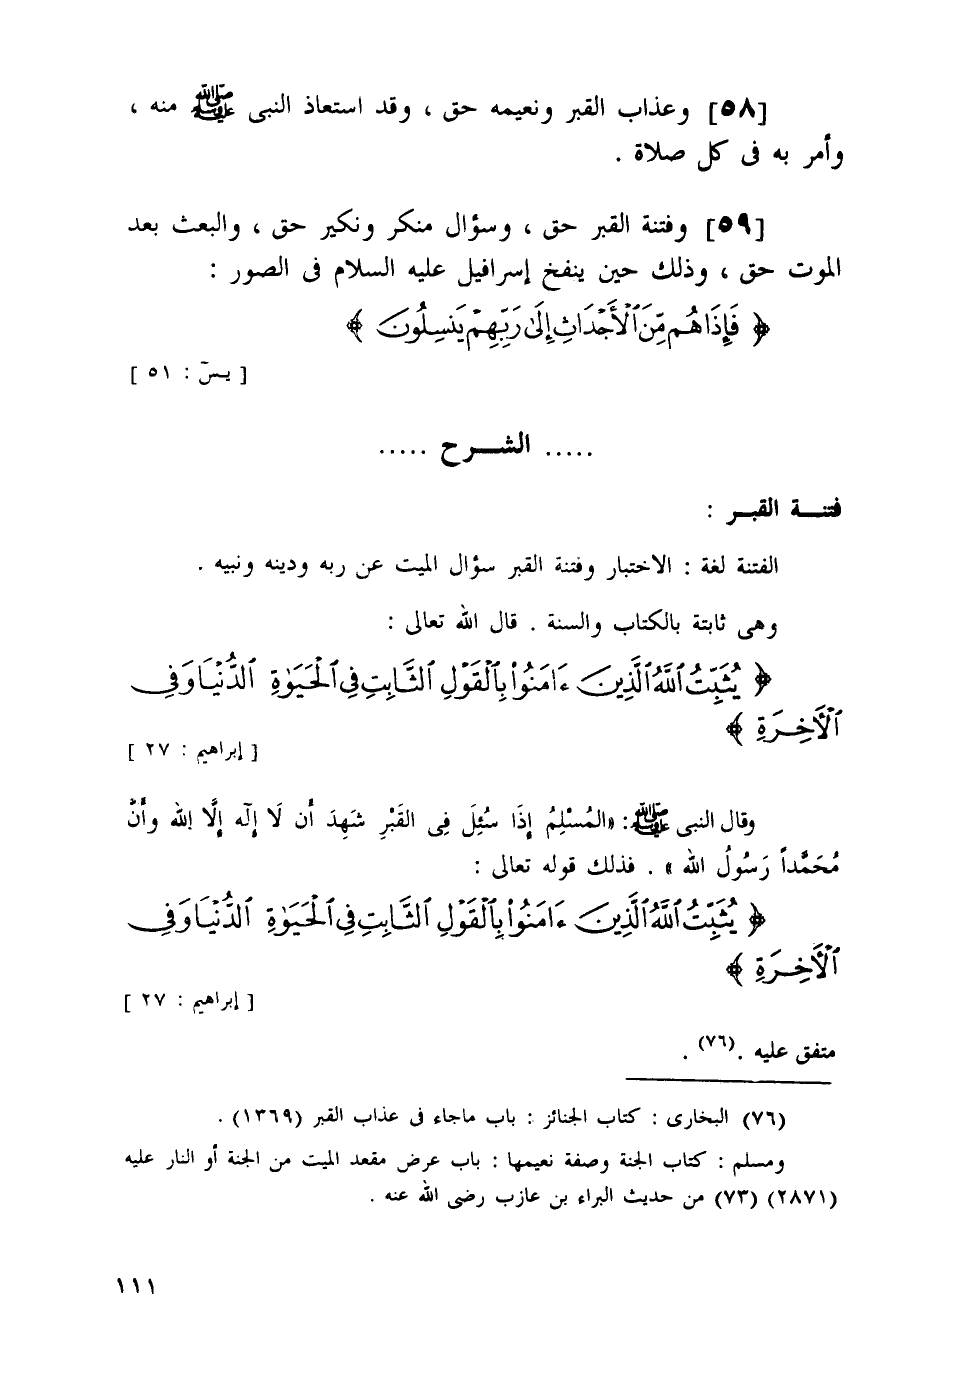 [٥٨] وعذاب القبر ونعيمه حق ، وقد استعاذ النبى ﷺ منه ،
وأمر به فى كل صلاة .
[٥٩] وفتنة القبر حق ، وسؤال منكر ونكير حق ، والبعث بعد
الموت حق ، وذلك حين ينفخ إسرافيل عليه السلام فى الصور :
﴿ فَإِذَا هُم مِّنَ ٱلْأَجْدَاثِ إِلَىٰ رَبِّهِمْ يَنسِلُونَ ﴾
[ يسٓ : ٥١ ]
..... الشـــرح .....
فتنـــة القبـــر :
الفتنة لغة : الاختبار وفتنة القبر سؤال الميت عن ربه ودينه ونبيه .
وهى ثابتة بالكتاب والسنة . قال الله تعالى :
﴿ يُثَبِّتُ ٱللَّهُ ٱلَّذِينَ ءَامَنُوا۟ بِٱلْقَوْلِ ٱلثَّابِتِ فِى ٱلْحَيَوٰةِ ٱلدُّنْيَا وَفِى
ٱلْأَخِرَةِ ﴾
[ إبراهيم : ٢٧ ]
وقال النبى ﷺ : «المُسْلِمُ إِذَا سُئِلَ فِى القَبْرِ شَهِدَ أَن لَا إِلَه إِلَّا الله وأَنَّ
مُحَمَّداً رَسُولُ الله » . فذلك قوله تعالى :
﴿ يُثَبِّتُ ٱللَّهُ ٱلَّذِينَ ءَامَنُوا۟ بِٱلْقَوْلِ ٱلثَّابِتِ فِى ٱلْحَيَوٰةِ ٱلدُّنْيَا وَفِى
ٱلْأَخِرَةِ ﴾
[ إبراهيم : ٢٧ ]
متفق عليه .(٧٦) .
(٧٦) البخارى : كتاب الجنائز : باب ماجاء فى عذاب القبر (١٣٦٩) .
ومسلم : كتاب الجنة وصفة نعيمها : باب عرض مقعد الميت من الجنة أو النار عليه
(٢٨٧١) (٧٣) من حديث البراء بن عازب رضى الله عنه .
١١١